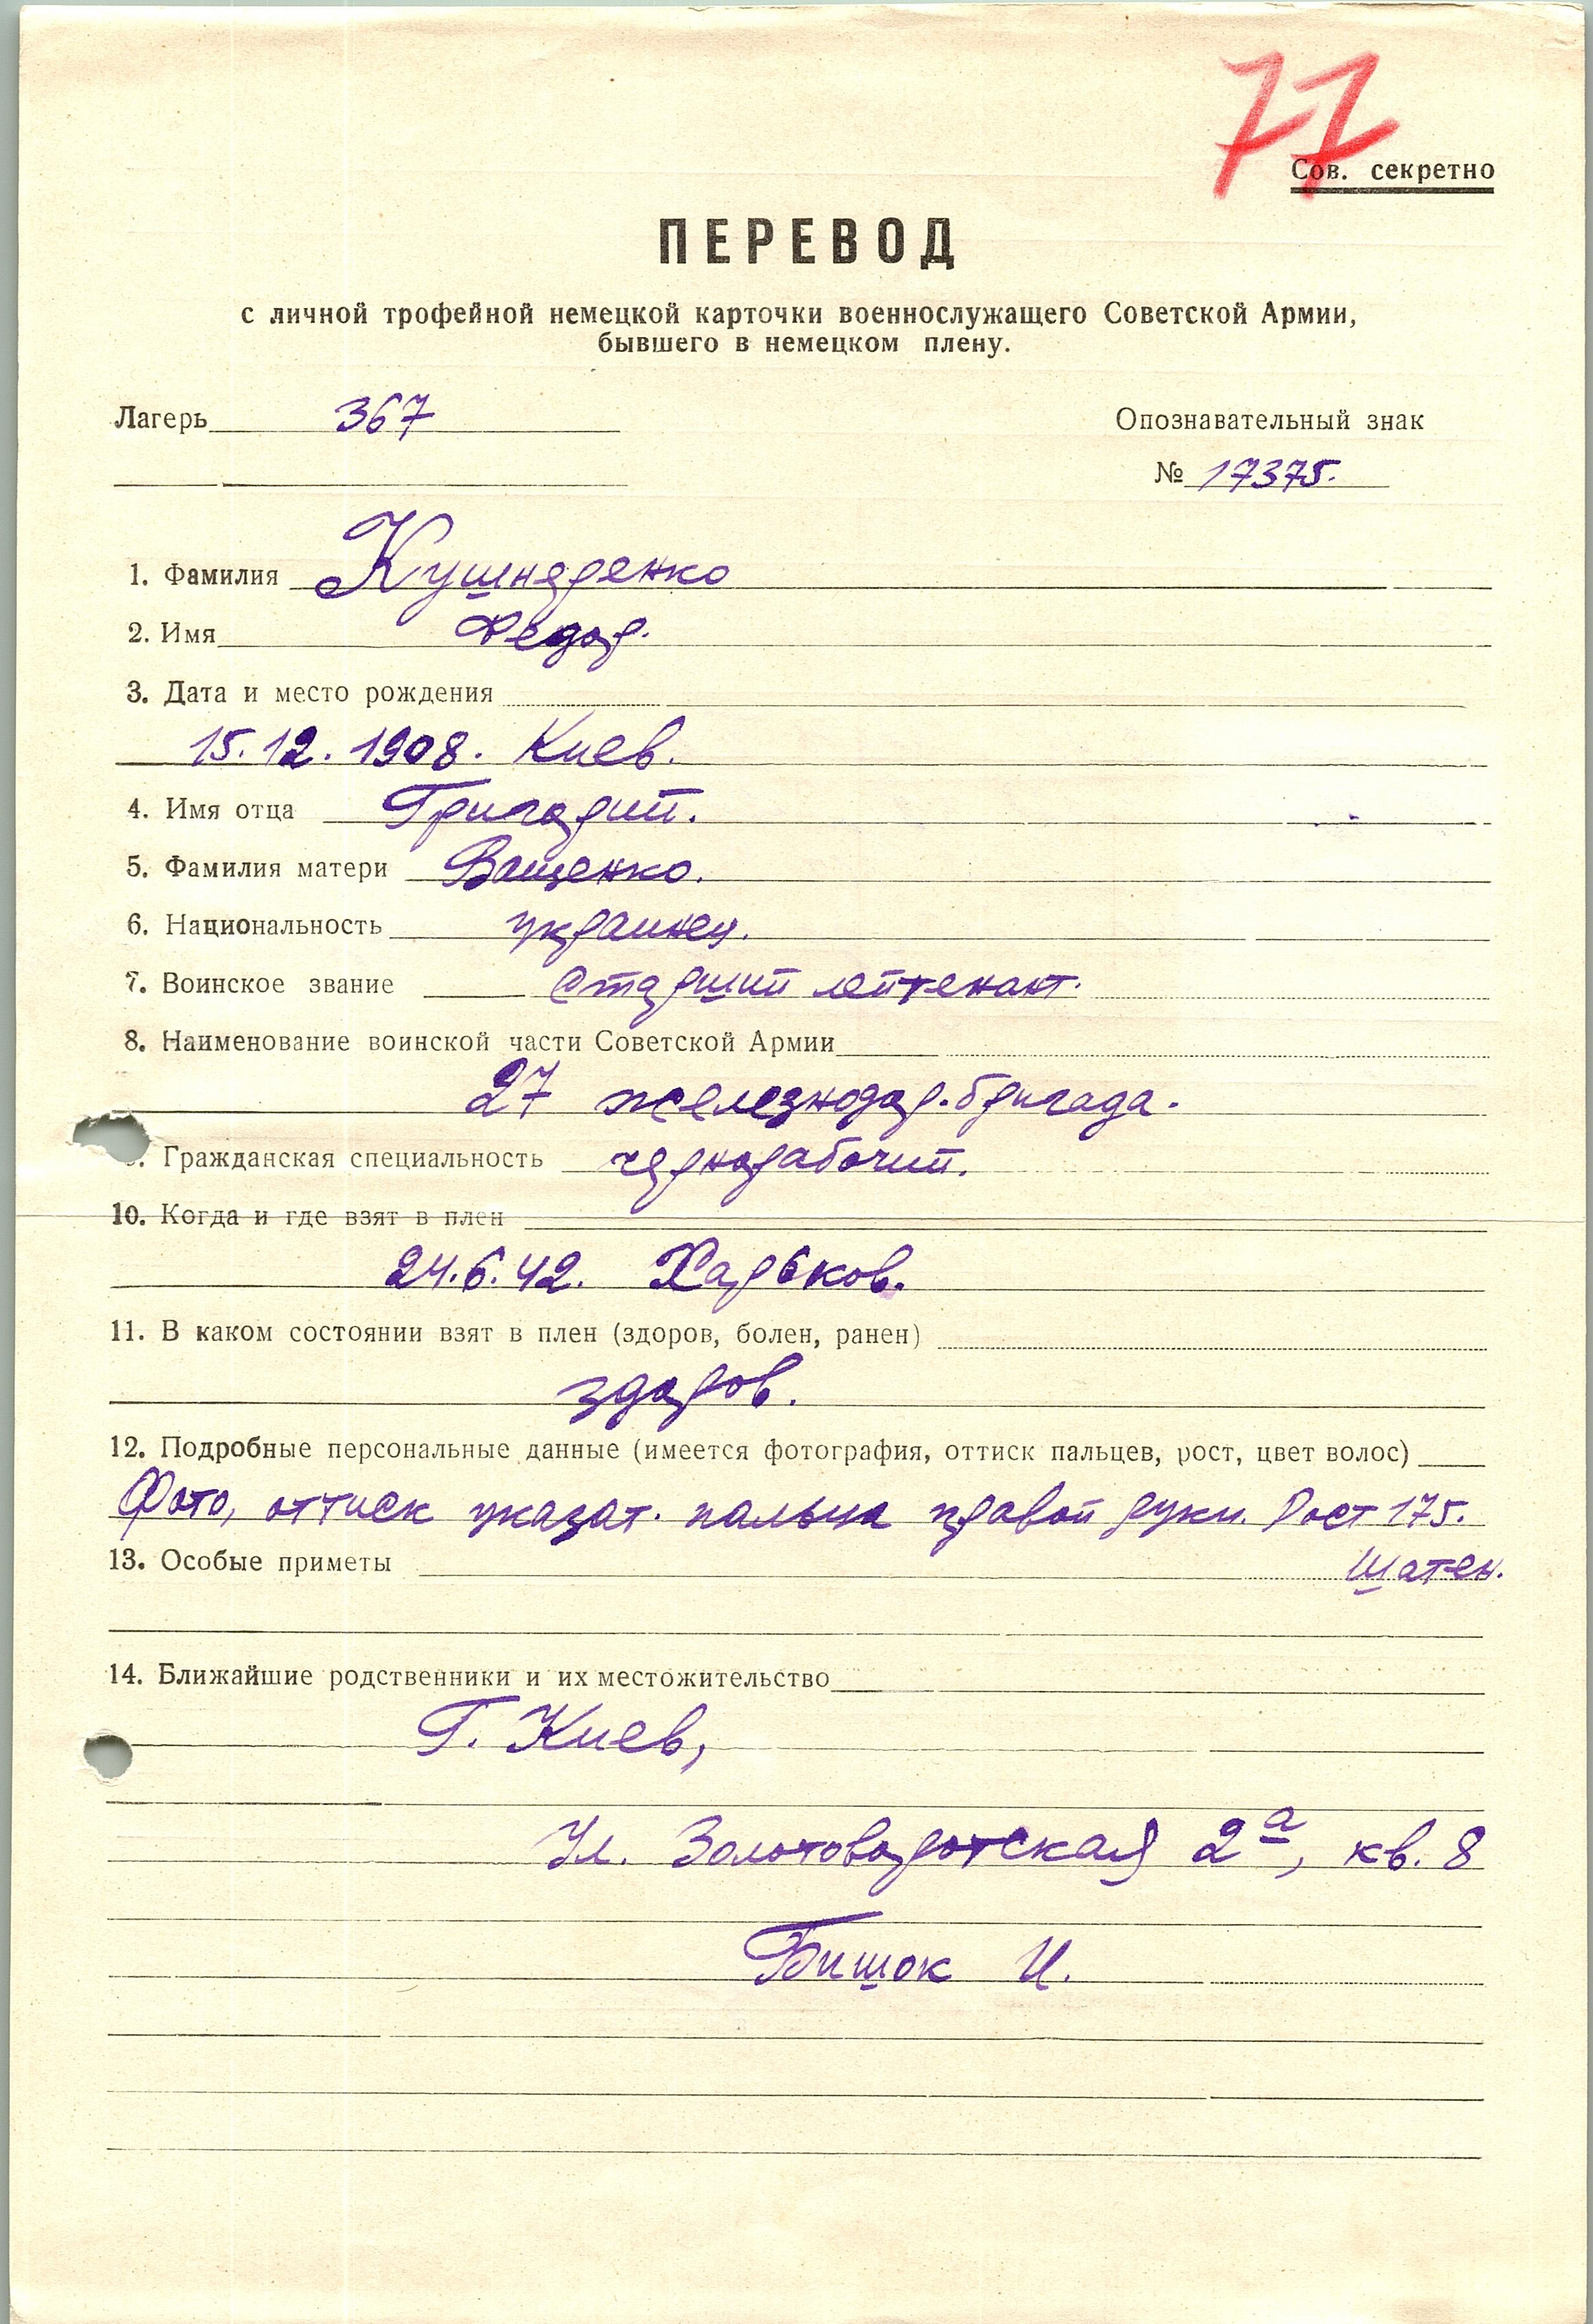 77
Сов. секретно
ПЕРЕВОД
с личной трофейной немецкой карточки военнослужащего Советской Армии,
бывшего в немецком плену.
Лагерь 367
Опознавательный знак
№ 17375.
1. Фамилия Кушнеренко
2. Имя Федор.
3. Дата и место рождения
15.12.1908. Киев.
4. Имя отца Григорий.
5. Фамилия матери Ващенко.
6. Национальность украинец.
7. Воинское звание Старший лейтенант.
8. Наименование воинской части Советской Армии
27 железнодор. бригада.
Гражданская специальность чернорабочий.
10. Когда и где взят в плен
24.6.42. Харьков.
11. В каком состоянии взят в плен (здоров, болен, ранен)
здоров.
12. Подробные персональные данные (имеется фотография, оттиск пальцев, рост, цвет волос)
Фото, оттиск указат. пальца правой руки. Рост 175.
13. Особые приметы Шатен.
14. Ближайшие родственники и их местожительство
Г. Киев,
Ул. Золотоворотская 2а, кв. 8
Бишок И.